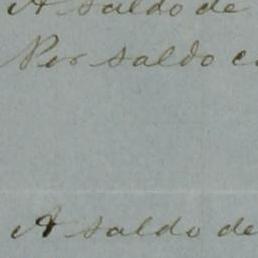 A saldo de
Por saldo
A saldo de